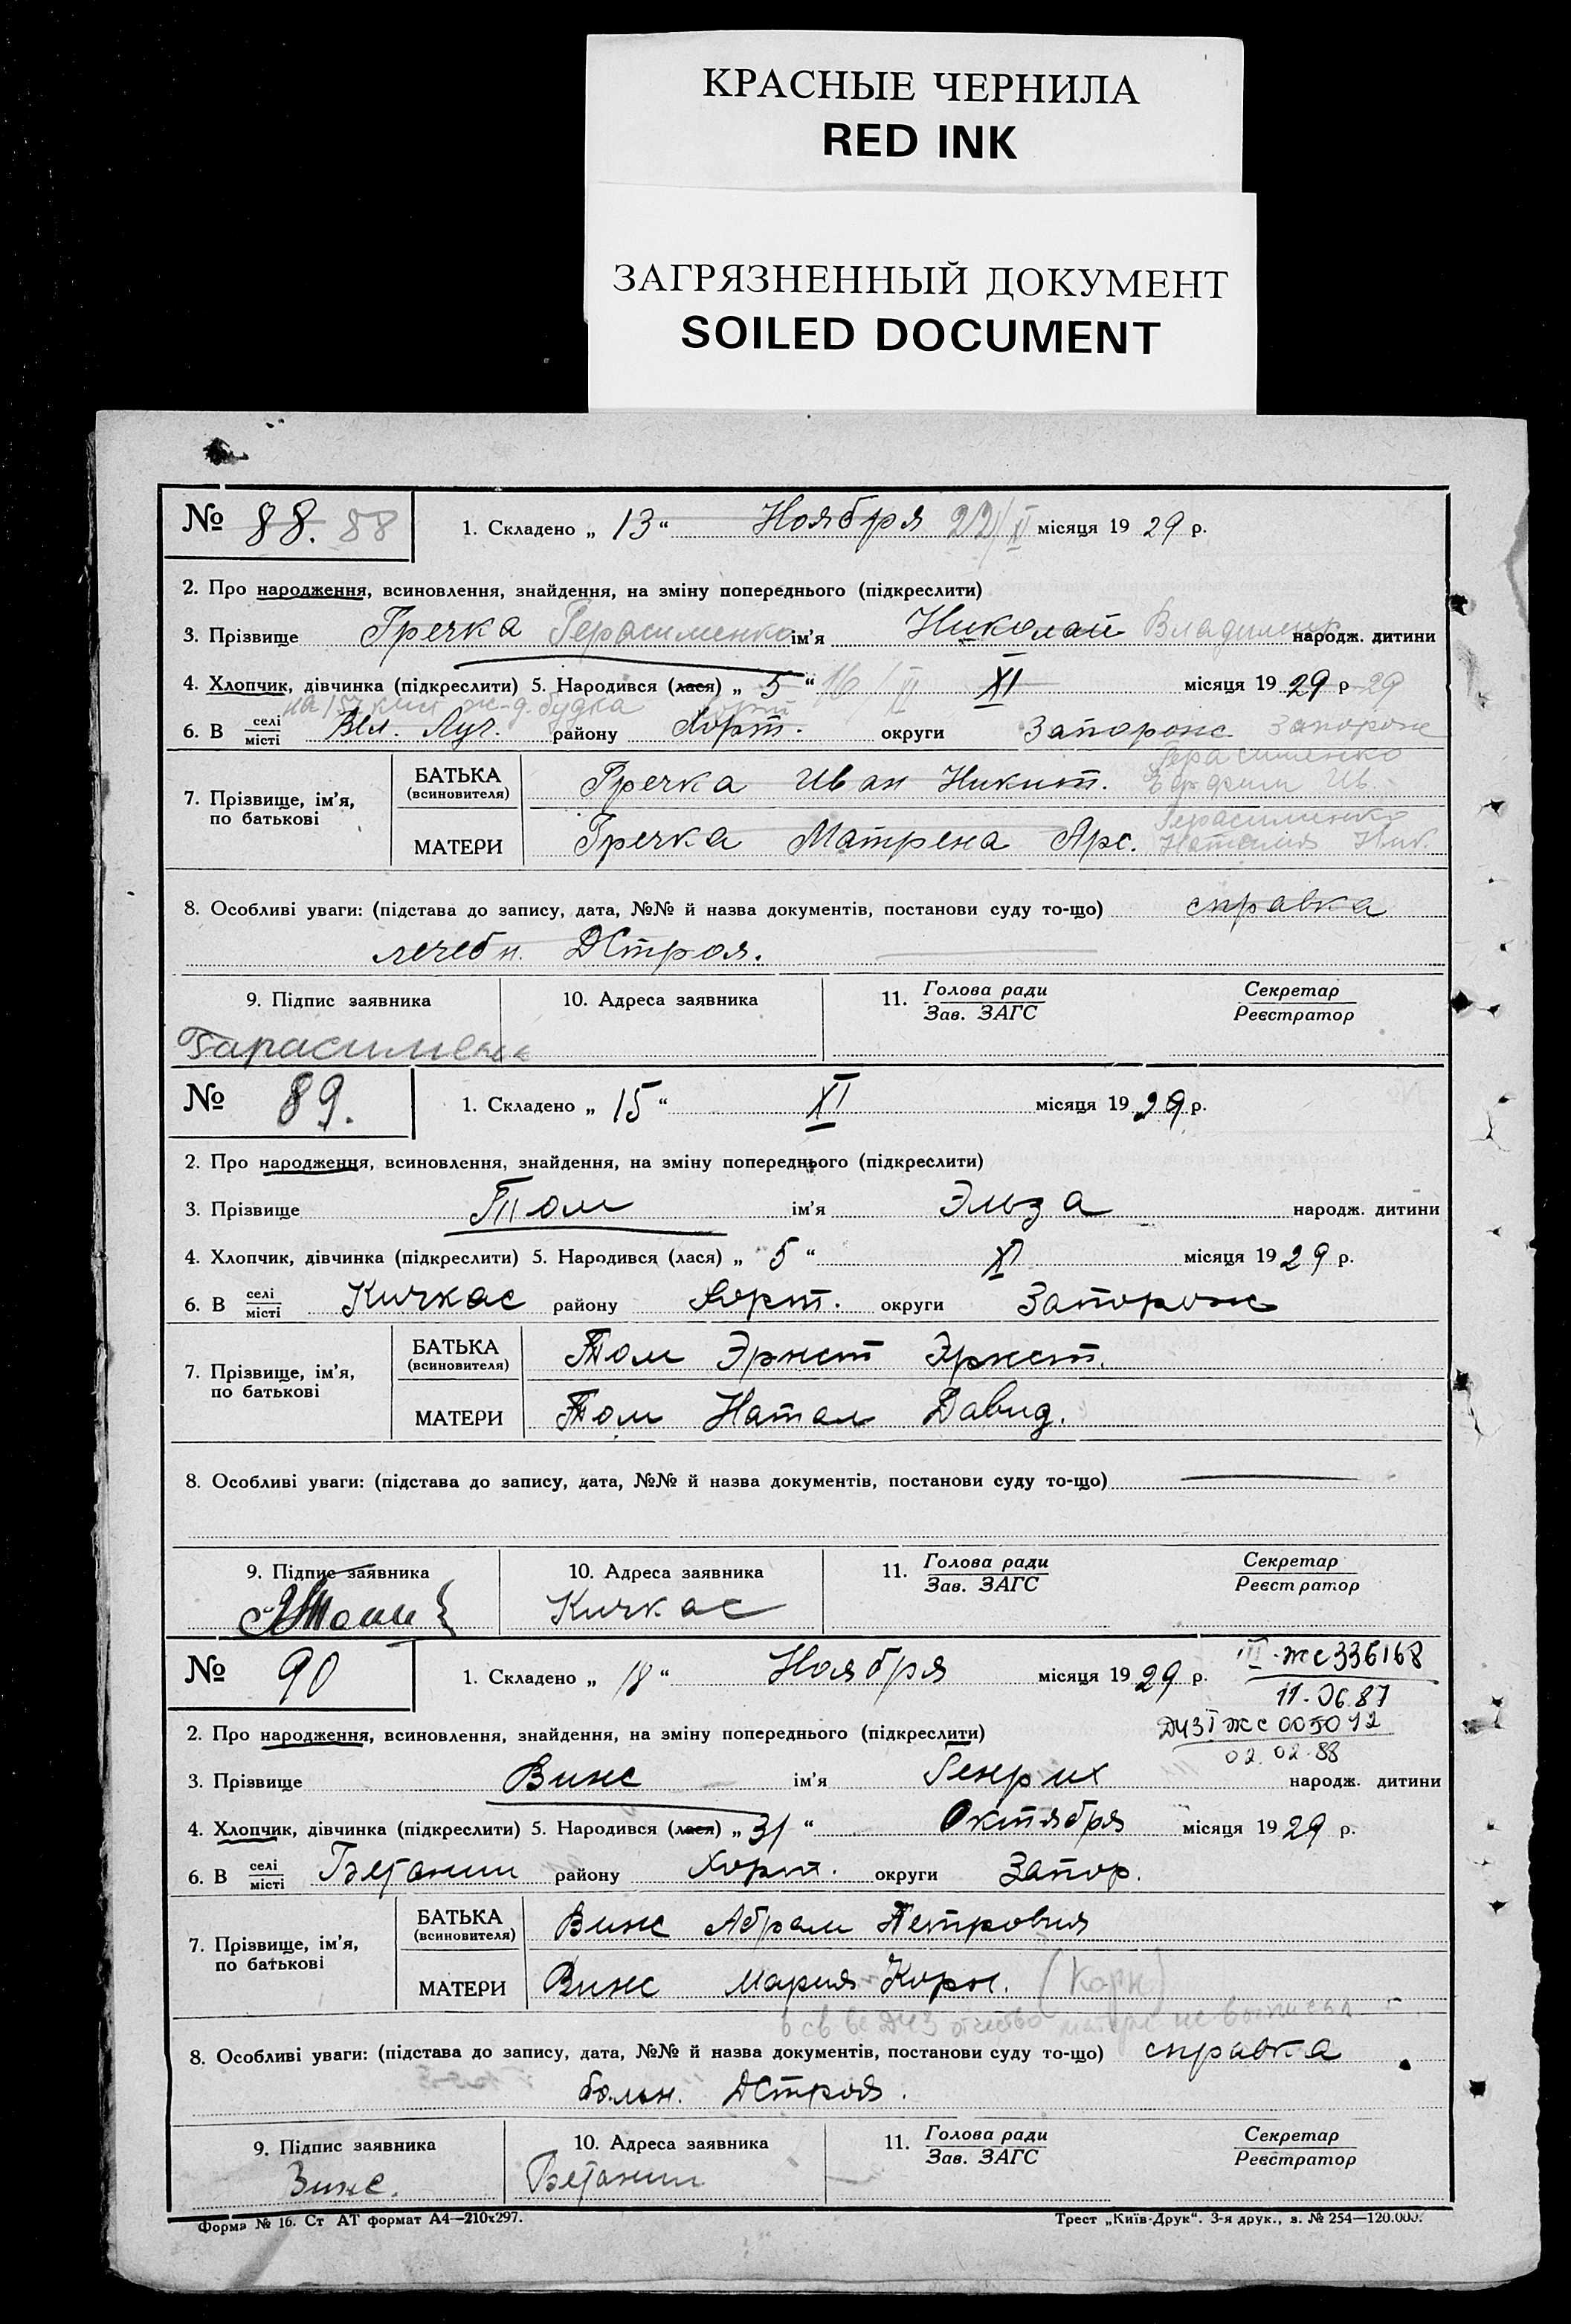 КРАСНЫЕ ЧЕРНИЛА
RED INK
ЗАГРЯЗНЕННЫЙ ДОКУМЕНТ
SOILED DOCUMENT
№ 88. 88 1. Складено „ 13 “ Ноября 22/XI місяця 19 29 р.
2. Про народження, всиновлення, знайдення, на зміну попереднього (підкреслити)
3. Прізвище Гречка Герасименко ім’я Николай Владимир народж. дитини
4. Хлопчик, дівчинка (підкреслити) 5. Народився (лася) „ 5 “ 16/II XI місяця 19 29 р 29
ж-д. будка
6. В селі місті Вел. Луг. району Хорт. округи Запорож. Запорож
Герасименко
7. Прізвище, ім’я, по батькові БАТЬКА (всиновителя) Гречка Иван Никит. Ефрем Ив.
Герасименко
МАТЕРИ Гречка Матрена Арс. Наталия Ник.
8. Особливі уваги: (підстава до запису, дата, №№ й назва документів, постанови суду то-що) справка
лечебн. ДСтроя.
9. Підпис заявника 10. Адреса заявника 11. Голова ради Зав. ЗАГС Секретар Реєстратор
Гарасименко
№ 89. 1. Складено „ 15 “ XI місяця 19 29 р.
2. Про народження, всиновлення, знайдення, на зміну попереднього (підкреслити)
3. Прізвище Том ім’я Эльза народж. дитини
4. Хлопчик, дівчинка (підкреслити) 5. Народився (лася) „ 5 “ XI місяця 19 29 р.
6. В селі місті Кичкас району Хорт. округи Запорож
7. Прізвище, ім’я, по батькові БАТЬКА (всиновителя) Том Эрнст Эрнест.
МАТЕРИ Том Натал Давид.
8. Особливі уваги: (підстава до запису, дата, №№ й назва документів, постанови суду то-що)
9. Підпис заявника 10. Адреса заявника 11. Голова ради Зав. ЗАГС Секретар Реєстратор
Кичкас
№ 90 1. Складено „ 18 “ Ноября місяця 19 29 р. III-жс 336168
11.06.87
2. Про народження, всиновлення, знайдення, на зміну попереднього (підкреслити) ДЧЗ I жс 005012
02.02.88
3. Прізвище Винс ім’я Генрих народж. дитини
4. Хлопчик, дівчинка (підкреслити) 5. Народився (лася) „ 31 “ Октября місяця 19 29 р.
6. В селі місті Бетании району Хорт. округи Запор.
7. Прізвище, ім’я, по батькові БАТЬКА (всиновителя) Винс Абрам Петрович
МАТЕРИ Винс Мария Корн. (Корн)
отчество матери не
8. Особливі уваги: (підстава до запису, дата, №№ й назва документів, постанови суду то-що) справка
больн. ДСтроя.
9. Підпис заявника 10. Адреса заявника 11. Голова ради Зав. ЗАГС Секретар Реєстратор
Винс. Бетании
Форма № 16. Ст АТ формат А4—210х297. Трест „Київ-Друк“. 3-я друк., з. № 254—120.000.